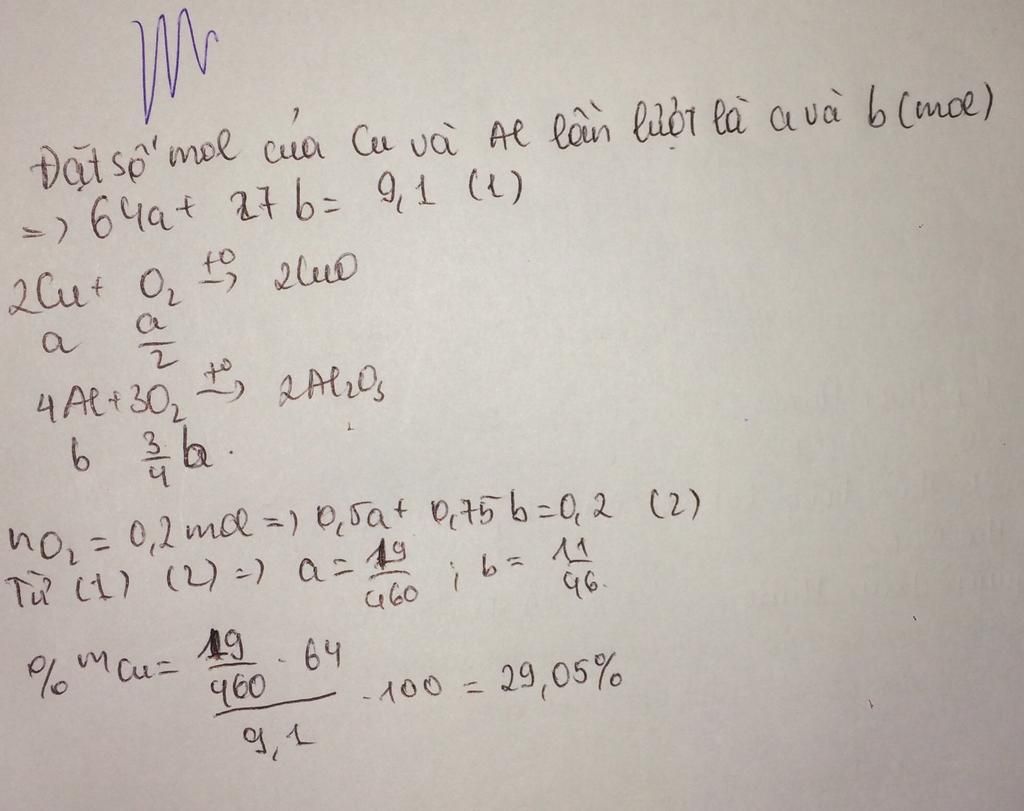 Đặt số mol của Cu và Al lần lượt là a và b (mol)
=> 64a + 27b = 9,1 (1)
2Cu + O₂ t°→ 2CuO
a a/2
4Al + 3O₂ t°→ 2Al₂O₃
b 3/4 b.
nO₂ = 0,2 mol => 0,5a + 0,75b = 0,2 (2)
Từ (1) (2) => a = 19/460 ; b = 11/46.
% mCu = (19/460 . 64)/9,1 . 100 = 29,05%